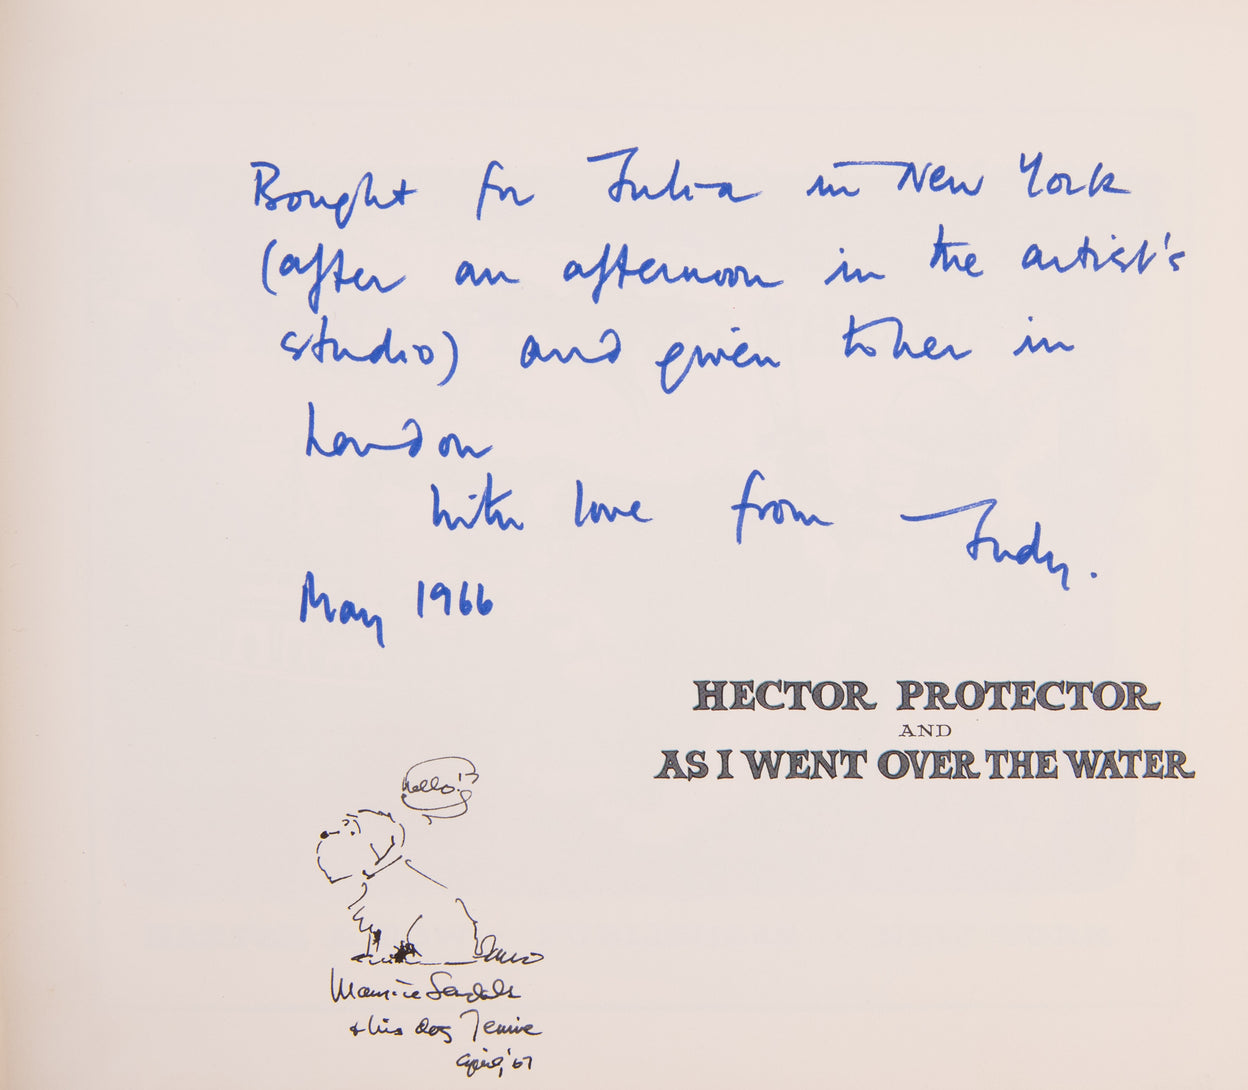 Bought for Julia in New York
(after an afternoon in the artist's
studio) and given to her in
London
with love from Judy.
May 1966
HECTOR PROTECTOR
AND
AS I WENT OVER THE WATER
hello!
Maurice Sendak
& his dog Jennie
April, '67